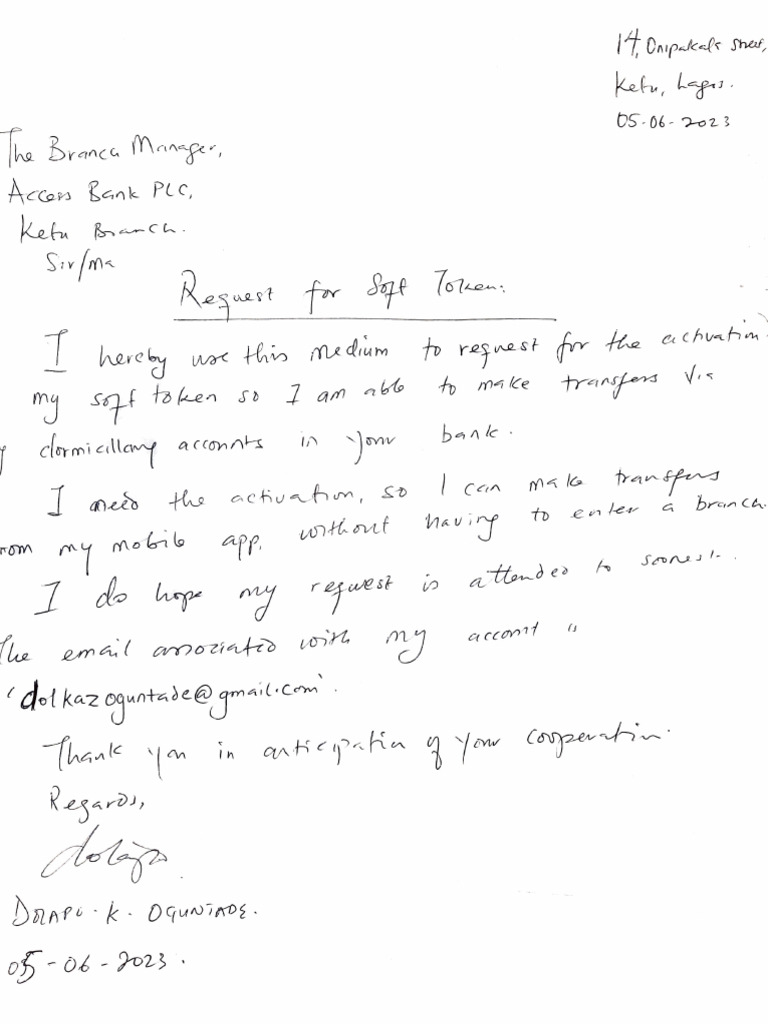 14, Onipakala Street,
Ketu, Lagos.
05-06-2023
The Branch Manager,
Access Bank PLC,
Ketu Branch.
Sir/ma
Request for Soft Token.
I hereby use this medium to request for the activation
my soft token so I am able to make transfers via
dormicillary accounts in your bank.
I need the activation, so I can make transfers
rom my mobile app, without having to enter a branch.
I do hope my request is attended to soonest.
The email associated with my account is
'dolkazoguntade@gmail.com'.
Thank you in anticipation of your cooperation.
Regards,
DOLAPO. K. OGUNTADE.
05-06-2023.